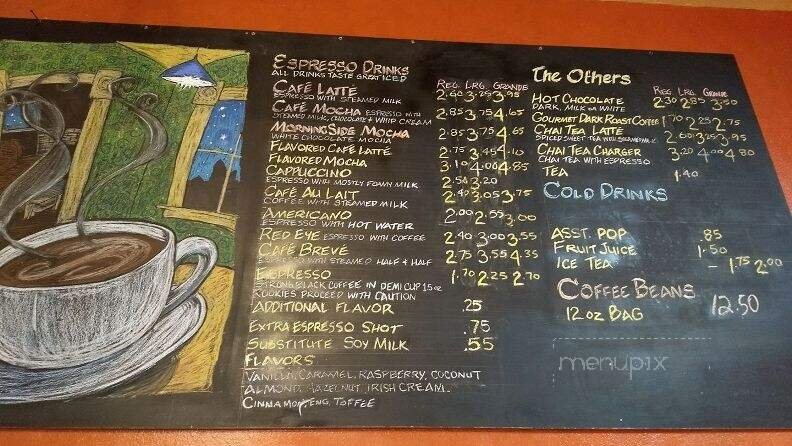 ESPRESSO DRINKS
ALL DRINKS TASTE GREAT ICED
REG. LRG. GRANDE
CAFÉ LATTE 2.60 3.25 3.95
ESPRESSO WITH STEAMED MILK
CAFÉ MOCHA ESPRESSO WITH 2.85 3.75 4.65
STEAMED MILK, CHOCOLATE & WHIP CREAM
MORNINGSIDE MOCHA 2.85 3.75 4.65
WHITE CHOCOLATE MOCHA
FLAVORED CAFÉ LATTE 2.75 3.45 4.10
FLAVORED MOCHA 3.10 4.00 4.85
CAPPUCCINO 2.50 3.20
ESPRESSO WITH MOSTLY FOAMY MILK
CAFÉ AU LAIT 2.40 3.05 3.75
COFFEE WITH STEAMED MILK
AMERICANO 2.00 2.55 3.00
ESPRESSO WITH HOT WATER
RED EYE ESPRESSO WITH COFFEE 2.40 3.00 3.55
CAFÉ BREVÉ 2.75 3.55 4.35
ESPRESSO WITH STEAMED HALF & HALF
ESPRESSO 1.70 2.25 2.70
STRONG BLACK COFFEE IN DEMI CUP 1.5 OZ
ROOKIES PROCEED WITH CAUTION
ADDITIONAL FLAVOR .25
EXTRA ESPRESSO SHOT .75
SUBSTITUTE SOY MILK .55
FLAVORS
VANILLA, CARAMEL, RASPBERRY, COCONUT
ALMOND, HAZELNUT, IRISH CREAM
CINNAMON, ENG. TOFFEE
The Others
REG. LRG. GRANDE
HOT CHOCOLATE 2.30 2.85 3.50
DARK, MILK OR WHITE
GOURMET DARK ROAST COFFEE 1.70 2.25 2.75
CHAI TEA LATTE 2.60 3.25 3.95
SPICED SWEET TEA WITH STEAMED MILK
CHAI TEA CHARGER 3.20 4.00 4.80
CHAI TEA WITH ESPRESSO
TEA 1.40
COLD DRINKS
ASST. POP .85
FRUIT JUICE 1.50
ICE TEA - 1.75 2.00
COFFEE BEANS
12 OZ BAG 12.50
menupix